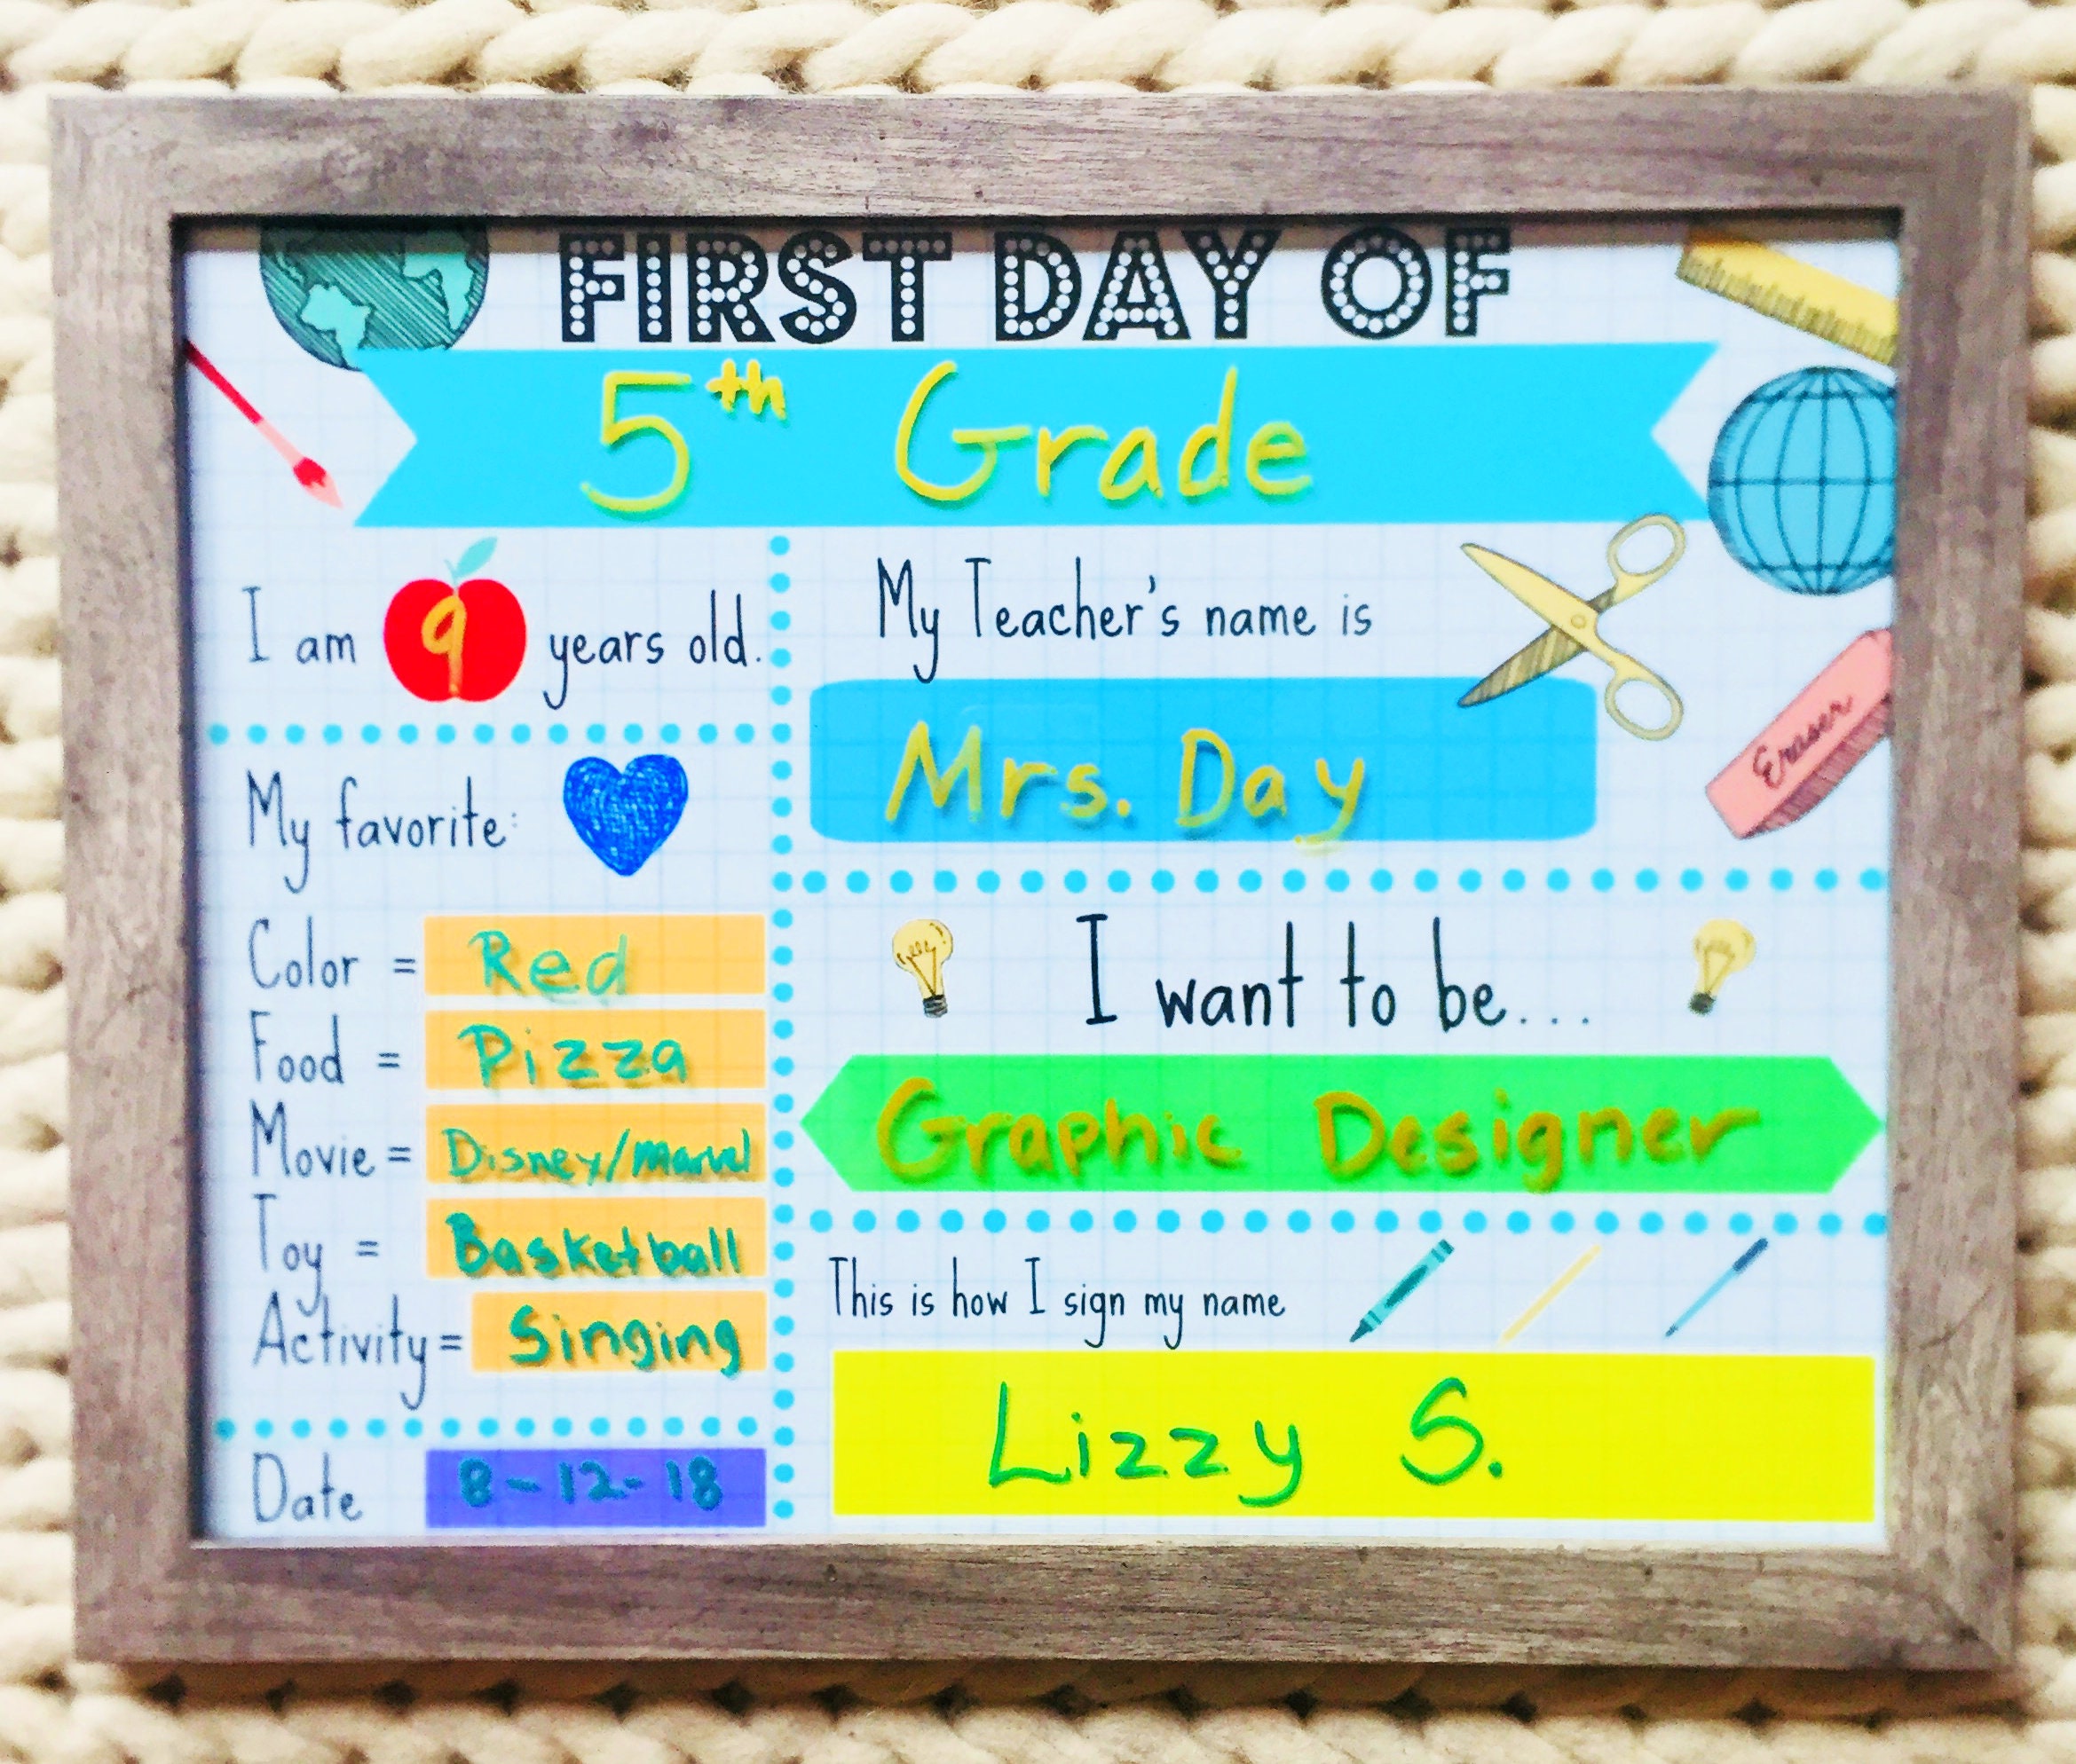 FIRST DAY OF
5th Grade
I am 9 years old.
My favorite:
Color = Red
Food = Pizza
Movie = Disney/Marvel
Toy = Basketball
Activity = Singing
Date 8-12-18
My Teacher's name is
Mrs. Day
Eraser
I want to be...
Graphic Designer
This is how I sign my name
Lizzy S.